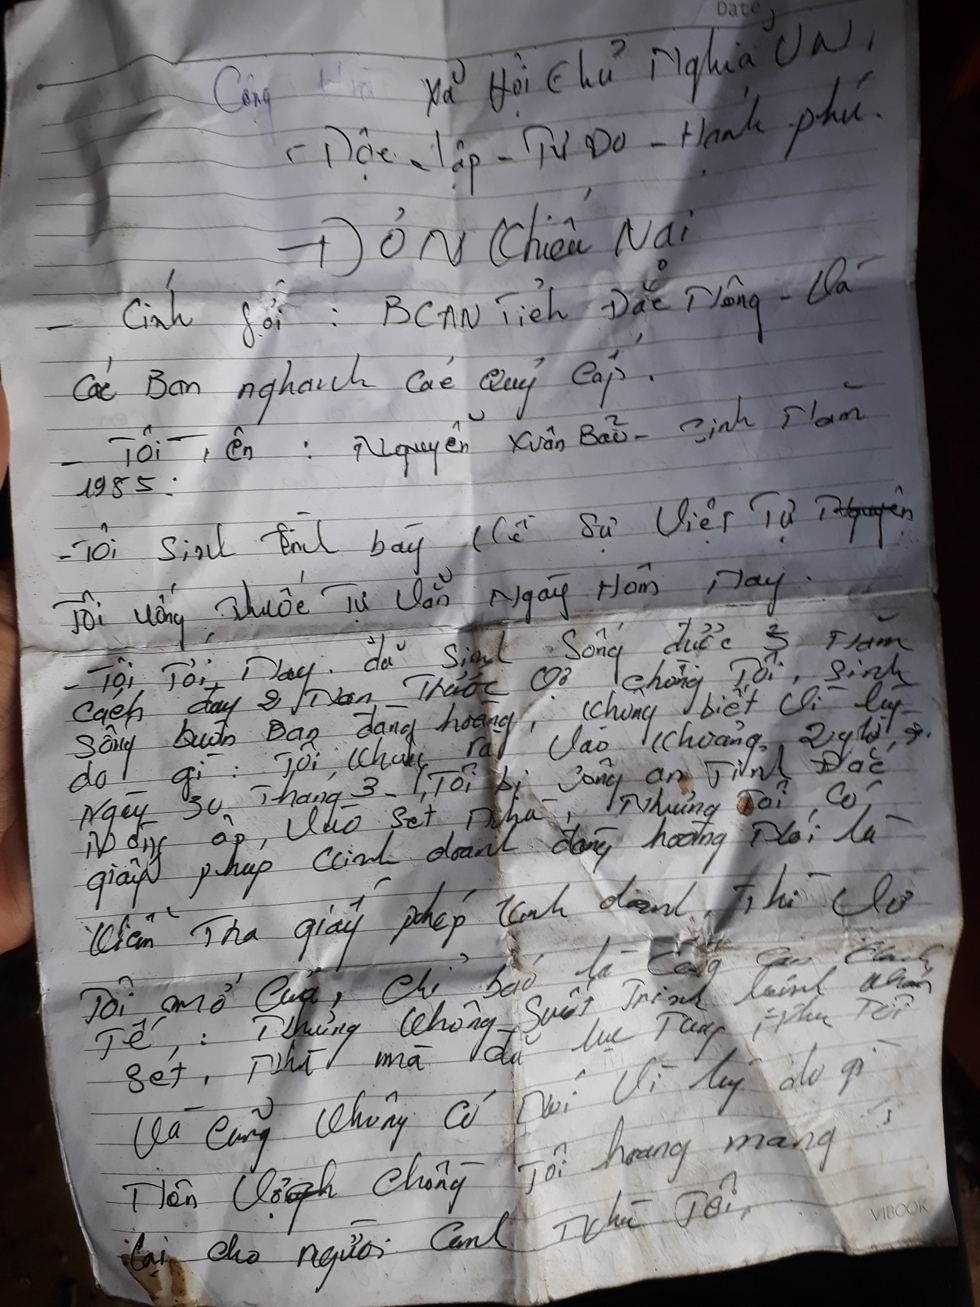 Date
Cộng xã Hội Chủ Nghĩa VN,
- Độc lập - Tự Do - Hành phú.
ĐỎN Khiếu Nại
- Cính gởi : BCAN Tỉnh Đắc Nông - Và
Các Ban nghành các Quý Cấp.
- Tôi Tên : Nguyễn Xuân Bảo - Sinh Năm
1985:
- Tôi Sinh bày Kể Sự Việt Tự Nguyện
Tôi uống Thuốc Tự Vẩn Ngày Hôm Nay.
- Tôi Tới Nay. đã Sinh Sống được 3 Năm
Cách đây 2 Năm Trước Vợ chồng Tôi, Sinh
Sống buôn Ban đàng hoàng, Không biết Vì lý
do gì : Tôi, Vào Khoảng, 2 giờ
Ngày 30 Thang 3 - Tôi bị Công an Tỉnh Đắc
Nông ập, Vào Sét Nhà, Nhưng Tôi Có
giấy phép Kinh doanh đàng hoàng Nói là
Kiễm Tra giấy phép Kinh doanh, Thì Vơ
Tôi mở Cửa, Chỉ báo là Công an
Tế : Nhưng Không Suất Trình
Sét, Nhà mà đã lục Tung Nhà Tôi
Và Cũng Không Có Nói Vì lý do gì
Nên Vợ Chồng Tôi hoang mang
lại cho người Canh Nhà Tôi,
VIBOOK